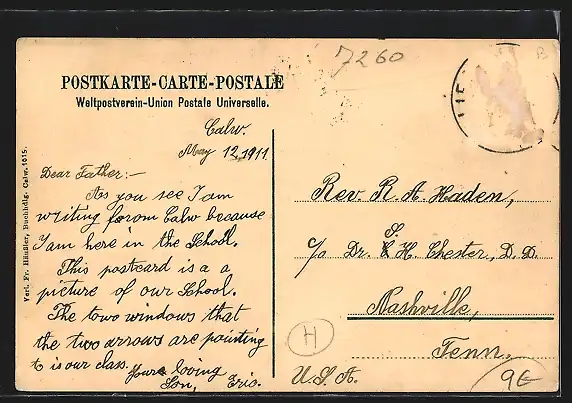 7260
POSTKARTE-CARTE-POSTALE
Weltpostverein-Union Postale Universelle.
Calw.
May 12, 1911
Dear Father:-
As you see I am
writing forom Calw because
I am here in the School.
This postcard is a a
picture of our School.
The towo windows that
the two arrows are pointing
to is our class. Yours loving
Son, Eris.
Rev. R. A. Haden,
c/o Dr. S. H. Chester, D. D.
Nashville,
Tenn.
U. S. A.
H
9€
Verl. Fr. Häußler, Buchhdlg. Calw. 1015.